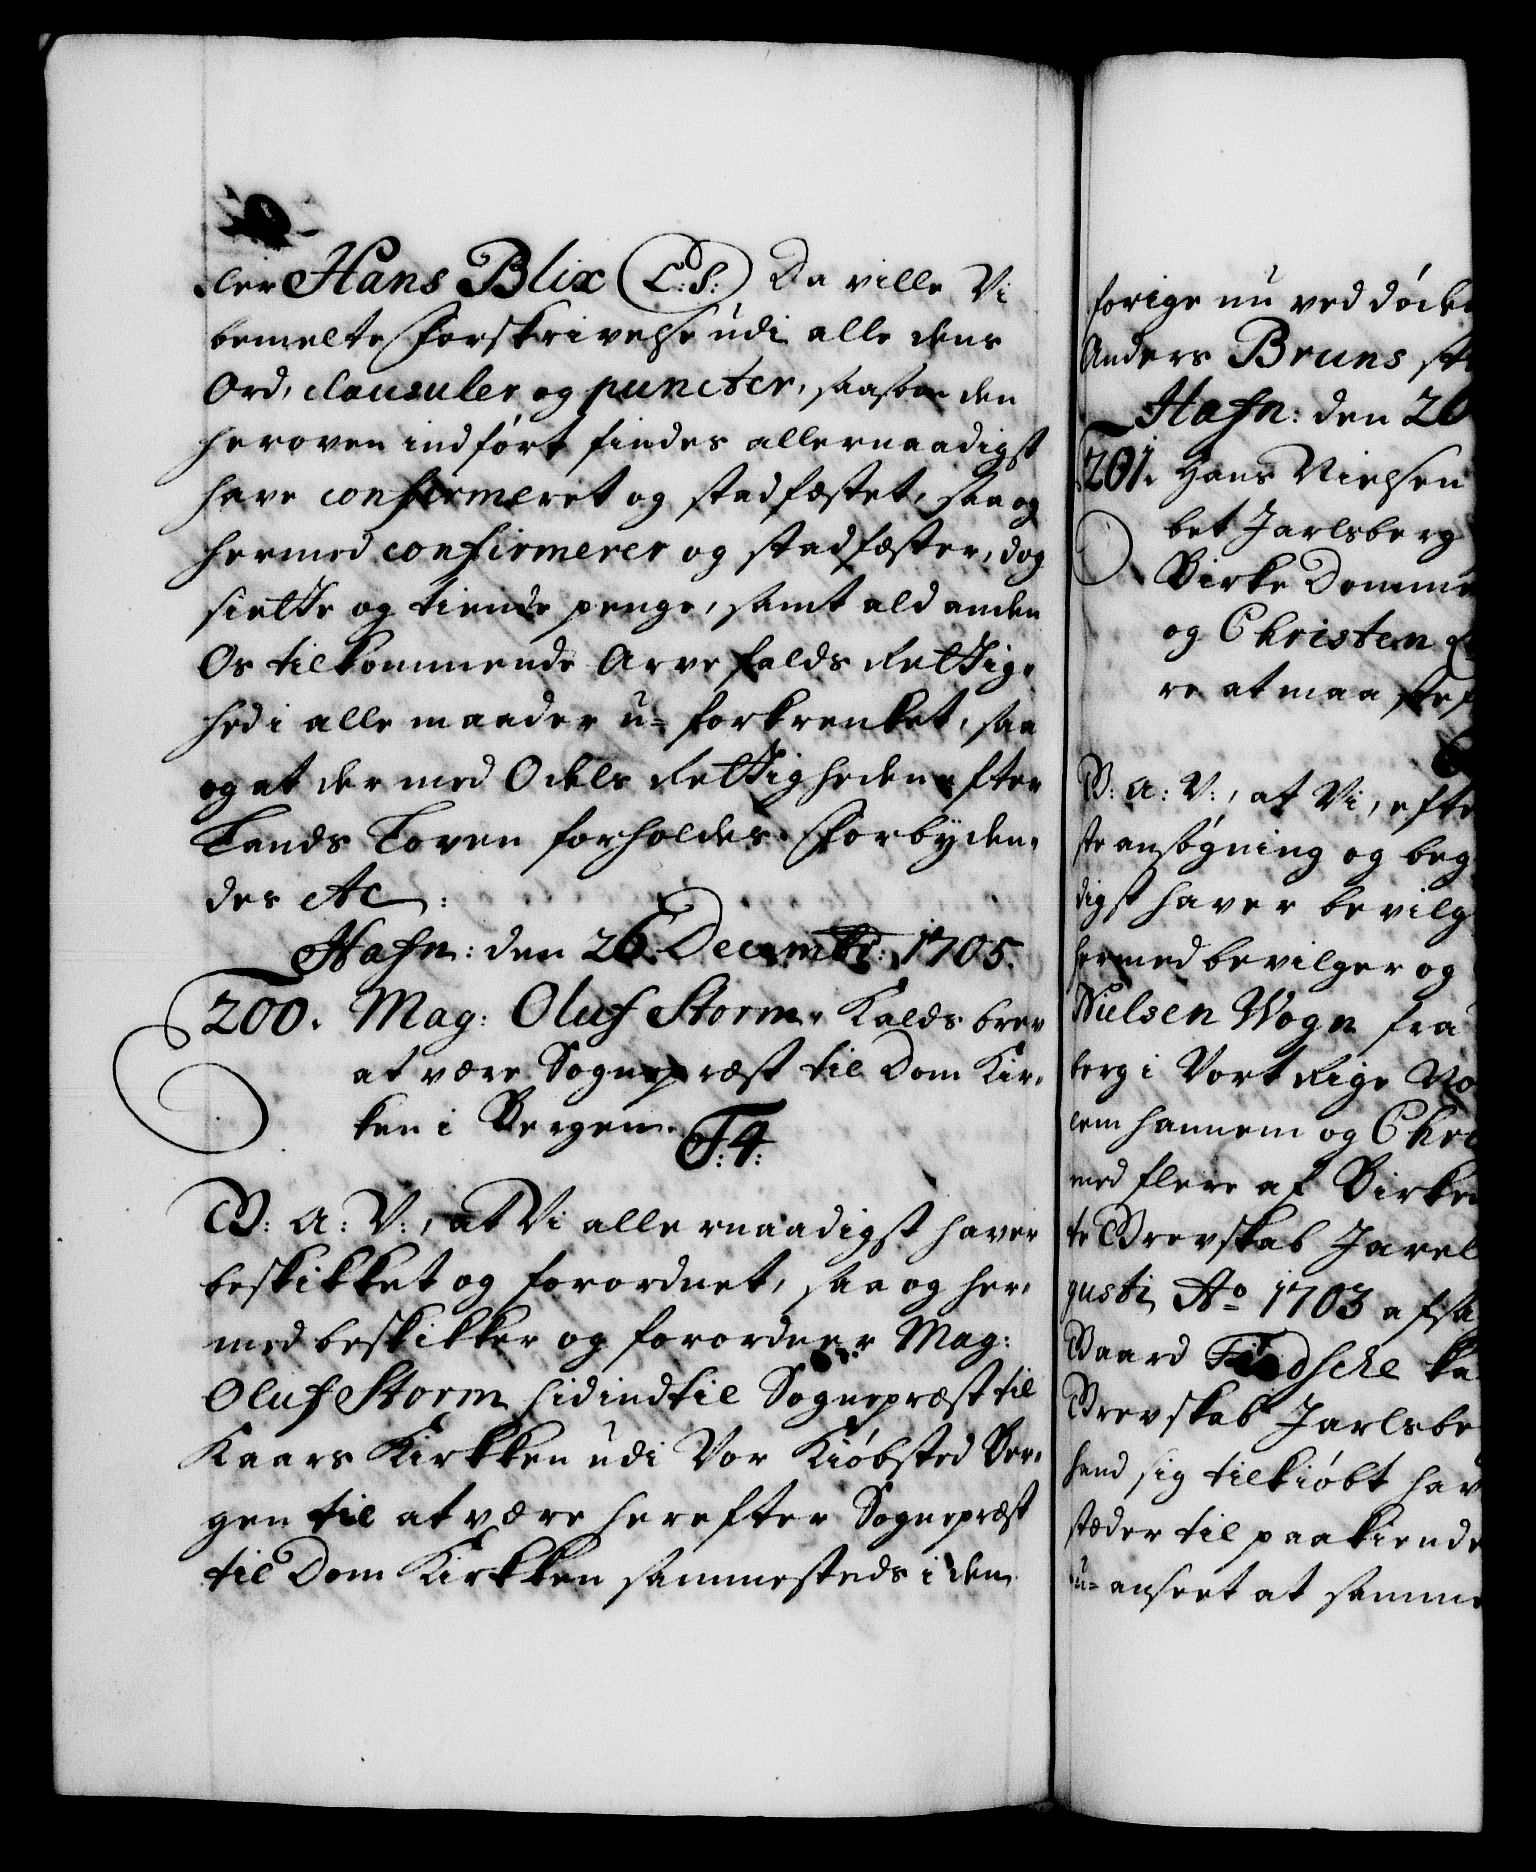 ler Hans Blix (L:S:) Da ville Vi
bemelte Forskrivelse udi alle dens
Ord, clausuler og puncter, saasom den
heroven indført findes allernaadigst
have confirmeret og stadfæstet, saa og
hermed confirmerer og stadfæster, dog
siette og tiende penge, samt ald anden
Os tilkommende Arve falds Rettig,
hed i alle maader u= forkrenket, saa
og at der med Odels Rettigheden efter
Lands Loven forholdes. Forbyden,
des etc:
Hafn: den 26 Decembr: 1705.
200. Mag: Oluf Storm, Kalds brev
at være Sognepræst til Dom Kir,
ken i Bergen.
F: 4:
V: A: V:, at Vi allernaadigst haver
beskikket og forordnet, saa og her,
med beskikker og forordner Mag:
Oluf Storm hidindtil Sognepræst til
Kaars Kirkken udi Vor Kiøbsted Ber,
gen til at være herefter Sognepræst
til Dom Kirkken sammesteds i den
forige nu ved døde
Anders Bruns
Hafn: den 26
201. Hans Nielsen
bet Jarlsberg
Birke Domme
og Christen
re at maa
V: A: V:, at Vi, efte
ste ansøgning og beg
digst haver bevilg
hermed bevilger og
Nielsen Wogn fra
berg i Vort Rige No
lem hannem og Chri
med flere af Birke
te Grevskab Jarel
gusti Ao 1703 afsa
Gaard
Grevskab Jarlsbe
hand sig tilkiøbt hav
stæder til paakiende
u= anseet at samme